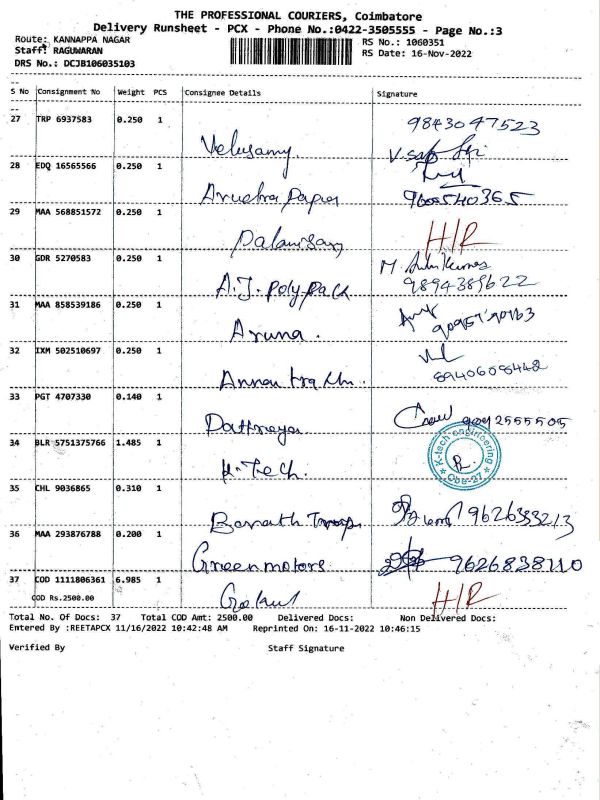 THE PROFESSIONAL COURIERS, Coimbatore
Delivery Runsheet - PCX - Phone No.:0422-3505555 - Page No.:3
Route: KANNAPPA NAGAR
RS No.: 1060351
Staff: RAGUWARAN
RS Date: 16-Nov-2022
DRS No.: DCJB106035103
S No Consignment No Weight PCS Consignee Details Signature
27 TRP 6937583 0.250 1 Velusamy 9843047523
28 EDQ 16565566 0.250 1 9600540365
29 MAA 568851572 0.250 1 Palanisamy H/R
30 GDR 5270583 0.250 1 A.J. Poly pack 9894389622
31 MAA 858539186 0.250 1 Aruna.
32 IXM 502510697 0.250 1
33 PGT 4707330 0.140 1
34 BLR 5751375766 1.485 1 K-Tech. K-tech engineering Cbe-27
35 CHL 9036865 0.310 1
36 MAA 293876788 0.200 1 Green motors 9626838110
37 COD 1111806361 6.985 1 H/R
COD Rs.2500.00
Total No. Of Docs: 37 Total COD Amt: 2500.00 Delivered Docs: Non Delivered Docs:
Entered By :REETAPCX 11/16/2022 10:42:48 AM Reprinted On: 16-11-2022 10:46:15
Verified By Staff Signature